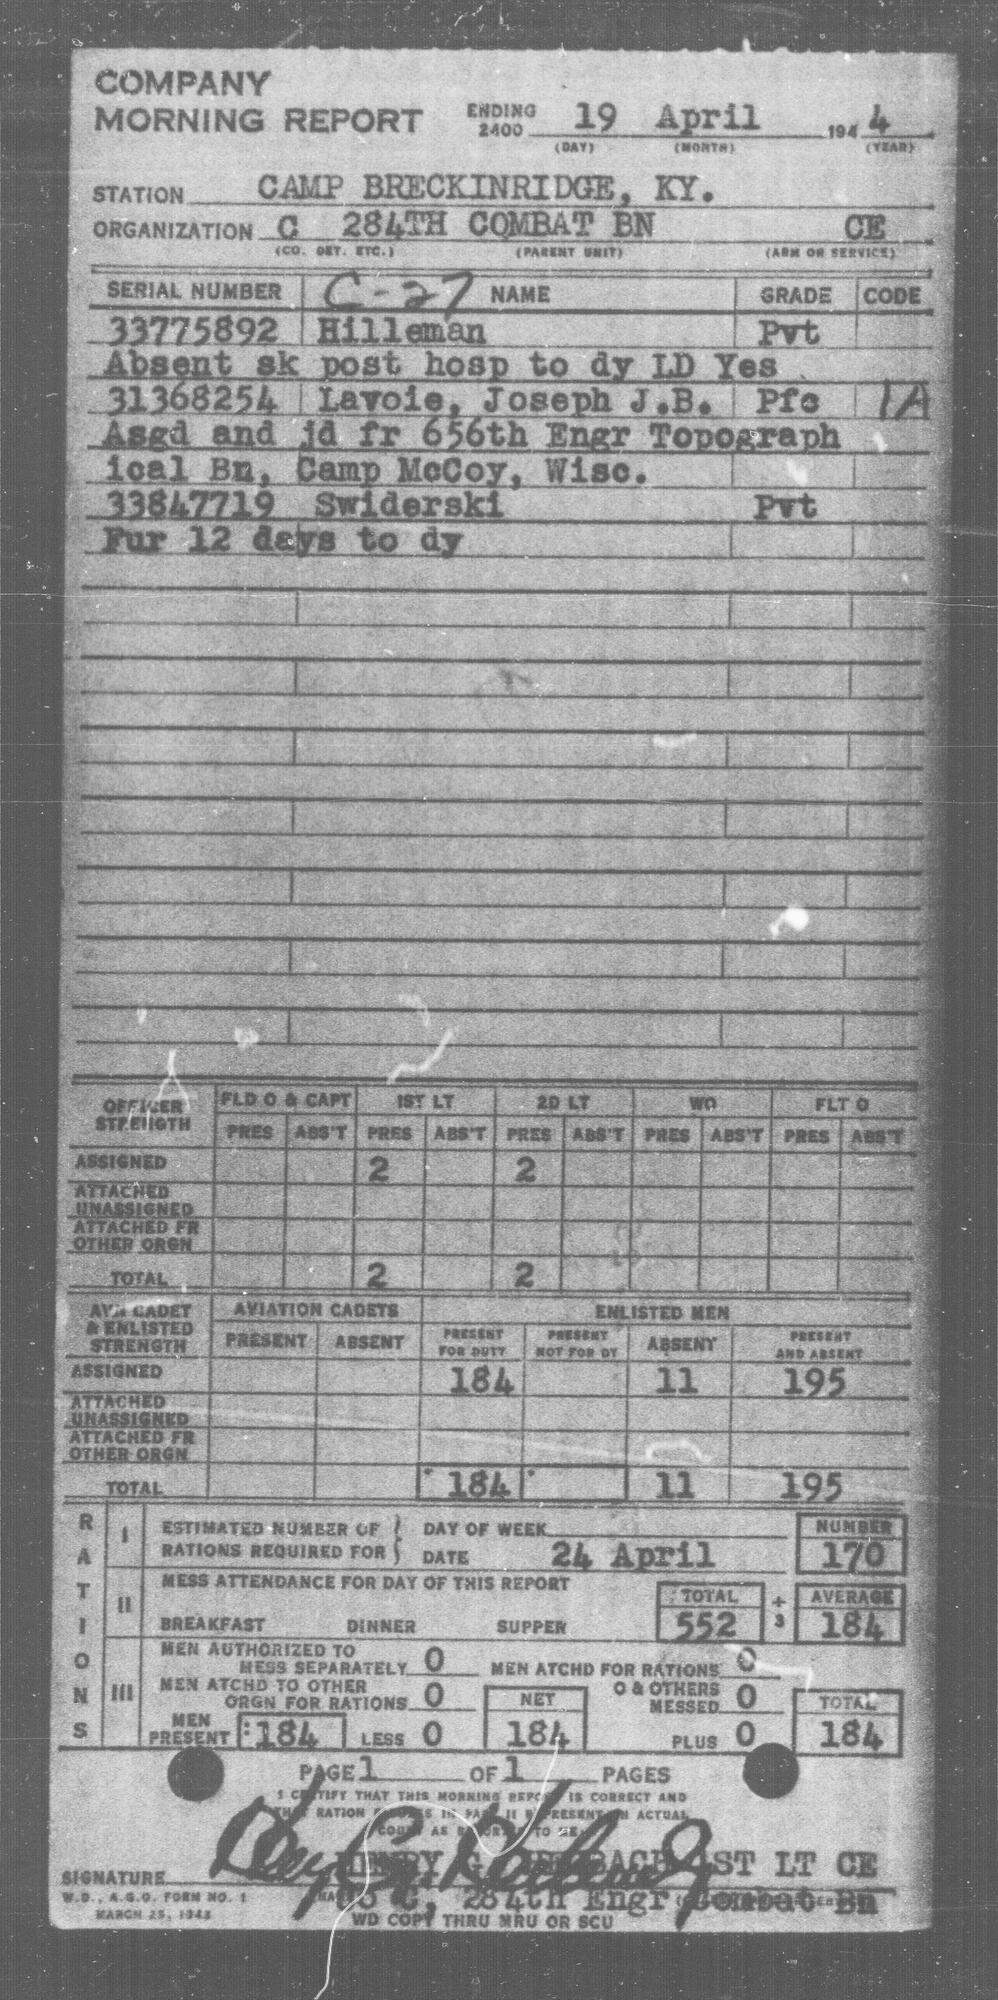 COMPANY
MORNING REPORT ENDING 2400 19 April 1944
(DAY) (MONTH) (YEAR)
STATION CAMP BRECKINRIDGE, KY.
ORGANIZATION C 284TH COMBAT BN CE
(CO. DET. ETC.) (PARENT UNIT) (ARM OR SERVICE)
SERIAL NUMBER C-27 NAME GRADE CODE
33775892 Hilleman Pvt
Absent sk post hosp to dy LD Yes
31368254 Lavoie, Joseph J.B. Pfc 1A
Asgd and jd fr 656th Engr Topograph
ical Bn, Camp McCoy, Wisc.
33847719 Swiderski Pvt
Fur 12 days to dy
OFFICER STRENGTH FLD O & CAPT 1ST LT 2D LT WO FLT O
PRES ABS'T PRES ABS'T PRES ABS'T PRES ABS'T PRES ABS'T
ASSIGNED 2 2
ATTACHED UNASSIGNED
ATTACHED FR OTHER ORGN
TOTAL 2 2
AVN CADET & ENLISTED STRENGTH AVIATION CADETS ENLISTED MEN
PRESENT ABSENT PRESENT FOR DUTY PRESENT NOT FOR DY ABSENT PRESENT AND ABSENT
ASSIGNED 184 11 195
ATTACHED UNASSIGNED
ATTACHED FR OTHER ORGN
TOTAL 184 11 195
RATIONS
I ESTIMATED NUMBER OF RATIONS REQUIRED FOR DAY OF WEEK NUMBER
DATE 24 April 170
II MESS ATTENDANCE FOR DAY OF THIS REPORT TOTAL ÷ 3 AVERAGE
BREAKFAST DINNER SUPPER 552 184
III MEN AUTHORIZED TO MESS SEPARATELY 0 MEN ATCHD FOR RATIONS 0
MEN ATCHD TO OTHER ORGN FOR RATIONS 0 NET O & OTHERS MESSED 0 TOTAL
MEN PRESENT 184 LESS 0 184 PLUS 0 184
PAGE 1 OF 1 PAGES
I CERTIFY THAT THIS MORNING REPORT IS CORRECT AND
THAT RATION FIGURES IN PART II REPRESENT AN ACTUAL
COUNT AS REPORTED TO ME
SIGNATURE HENRY G. 1ST LT CE
W.D., A.G.O. FORM NO. 1 Co C, 284th Engr Combat Bn
MARCH 25, 1943 WD COPY THRU MRU OR SCU